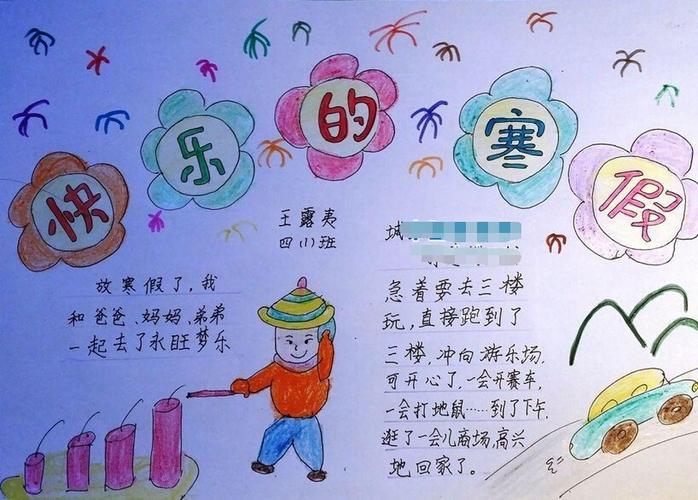 快乐的寒假
王露夷
四(1)班
放寒假了,我
和爸爸、妈妈、弟弟
一起去了永旺梦乐
城
急着要去三楼
玩,直接跑到了
三楼,冲向游乐场,
可开心了,一会开赛车,
一会打地鼠……到了下午,
逛了一会儿商场,高兴
地回家了。